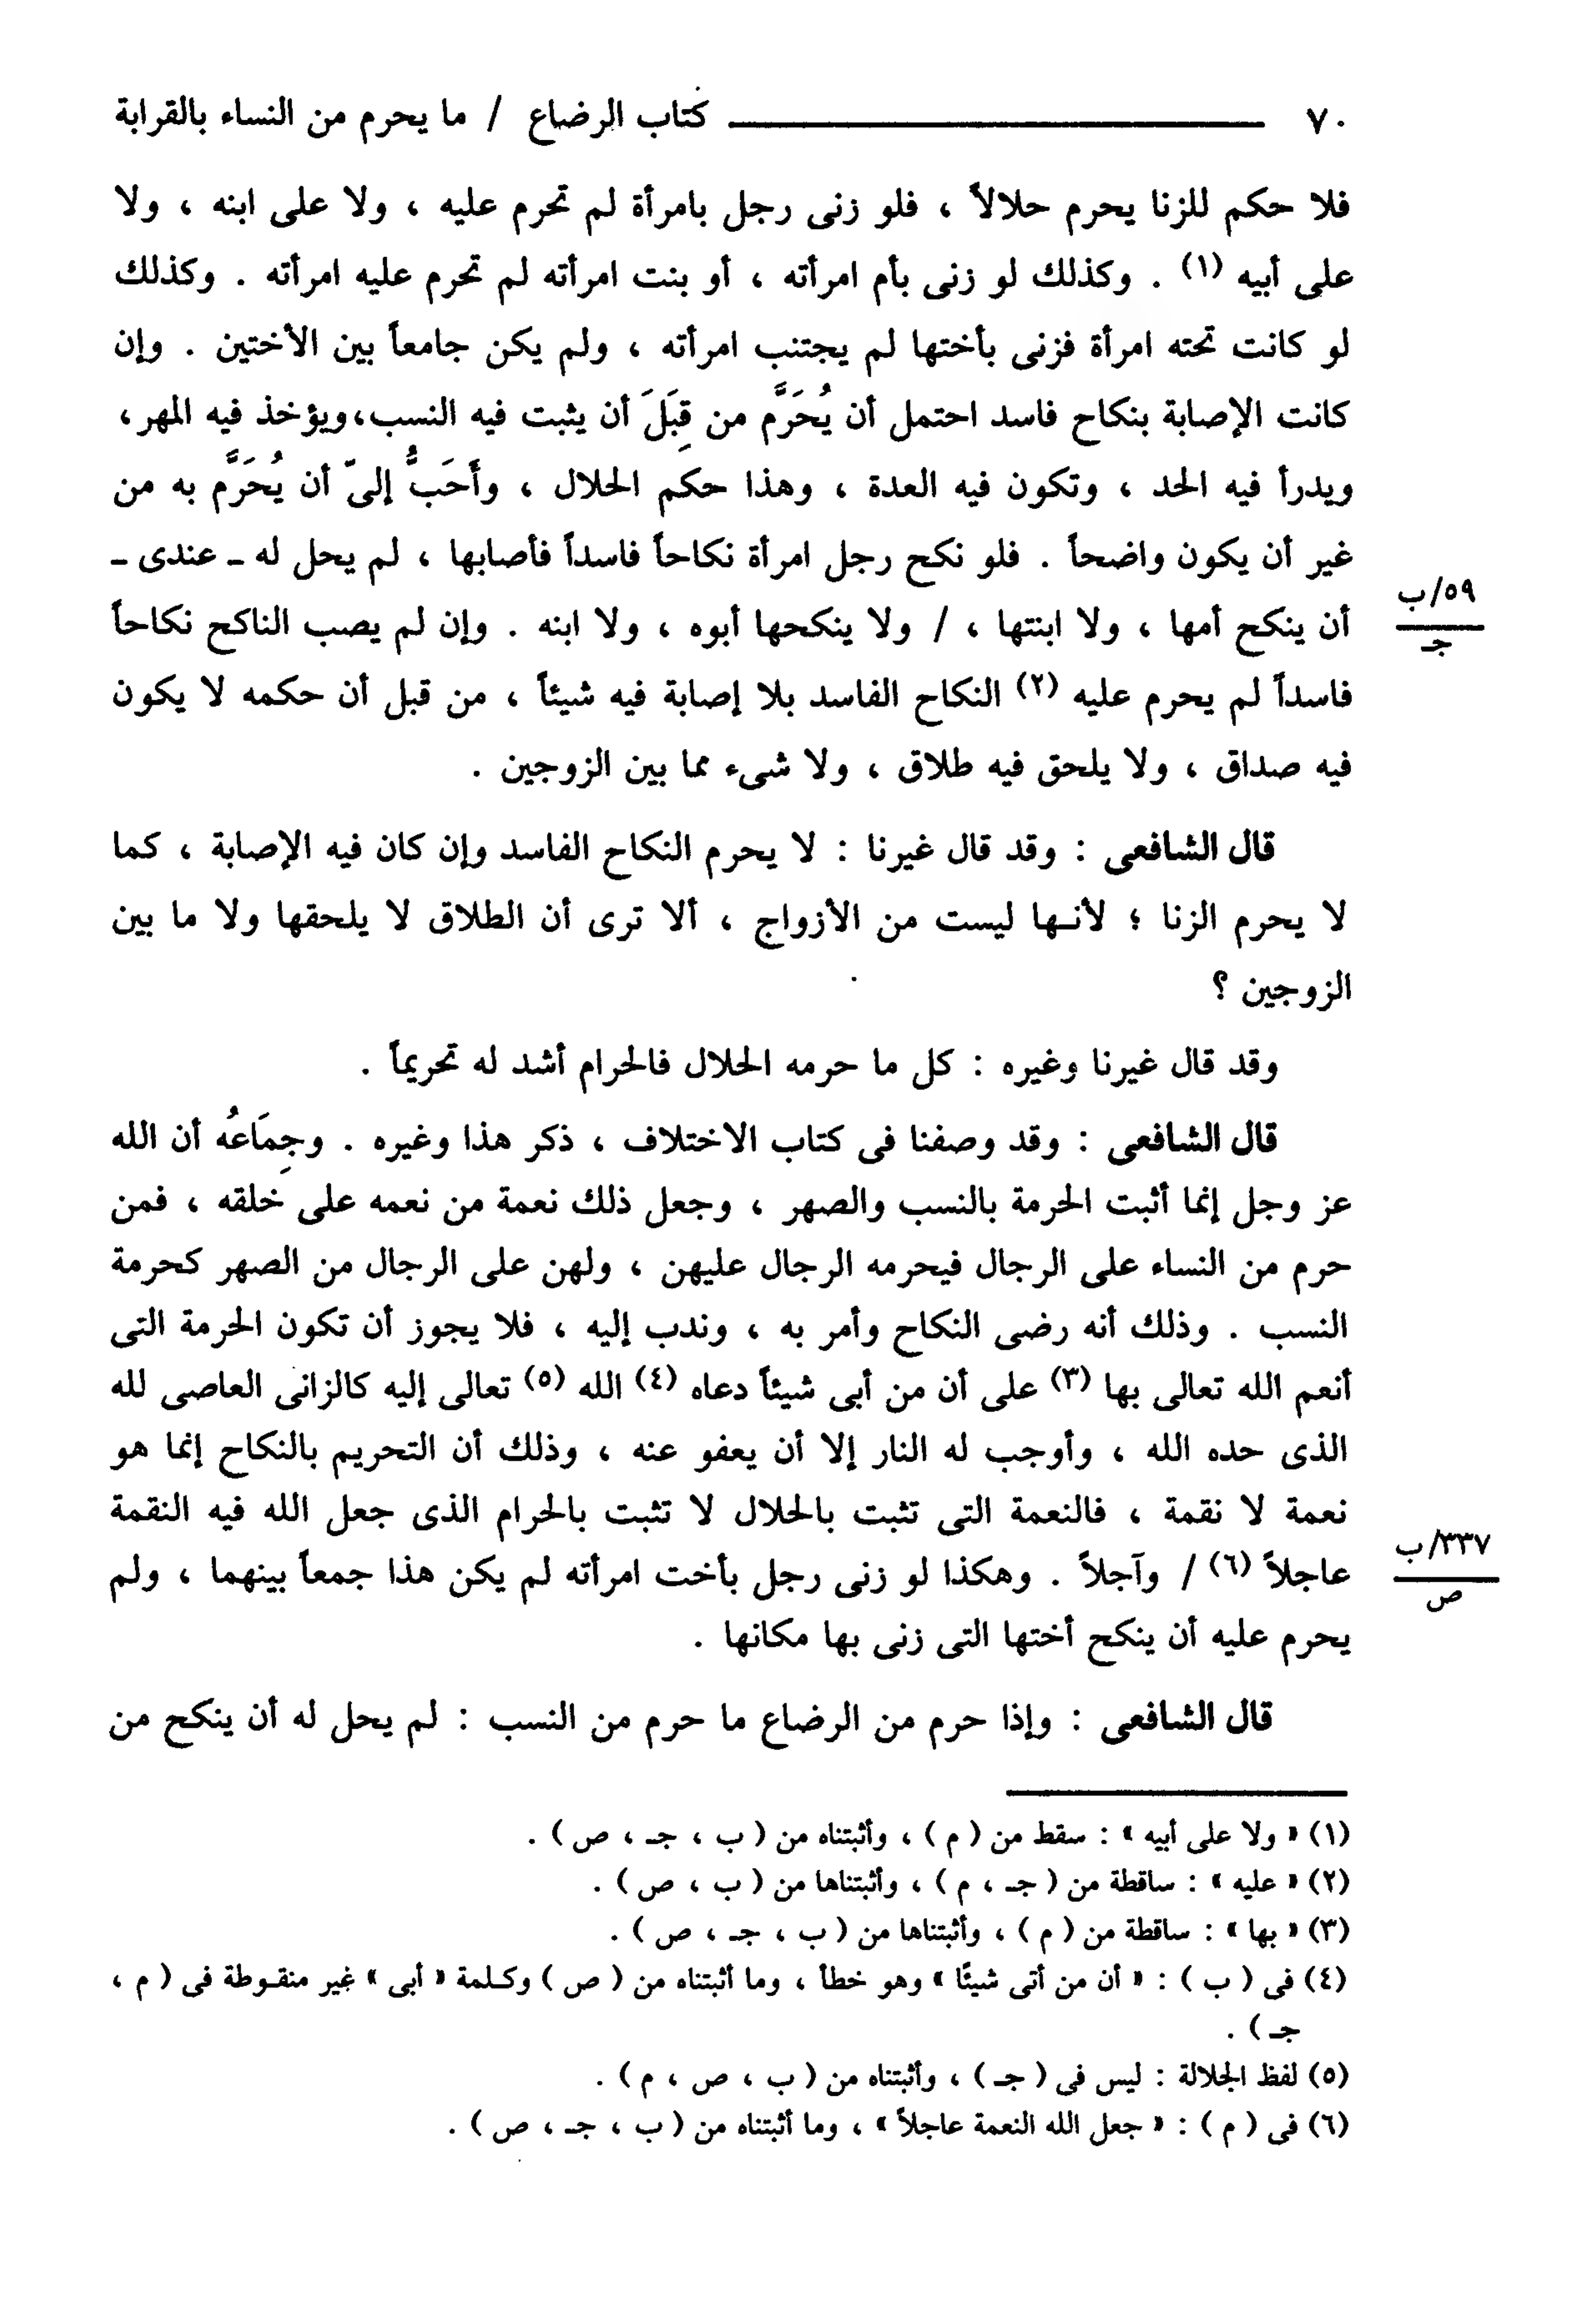 ٧٠ كتاب الرضاع / ما يحرم من النساء بالقرابة
فلا حكم للزنا يحرم حلالاً ، فلو زنى رجل بامرأة لم تحرم عليه ، ولا على ابنه ، ولا
على أبيه (١) . وكذلك لو زنى بأم امرأته ، أو بنت امرأته لم تحرم عليه امرأته . وكذلك
لو كانت تحته امرأة فزنى بأختها لم يجتنب امرأته ، ولم يكن جامعاً بين الأختين . وإن
كانت الإصابة بنكاح فاسد احتمل أن يُحَرَّم من قِبَلَ أن يثبت فيه النسب،ويؤخذ فيه المهر،
ويدرأ فيه الحد ، وتكون فيه العدة ، وهذا حكم الحلال ، وأَحَبُّ إلىّ أن يُحَرَّم به من
غير أن يكون واضحاً . فلو نكح رجل امرأة نكاحاً فاسداً فأصابها ، لم يحل له ـ عندى ـ
أن ينكح أمها ، ولا ابنتها ، / ولا ينكحها أبوه ، ولا ابنه . وإن لم يصب الناكح نكاحاً
٥٩/ب
جـ
فاسداً لم يحرم عليه (٢) النكاح الفاسد بلا إصابة فيه شيئاً ، من قبل أن حكمه لا يكون
فيه صداق ، ولا يلحق فيه طلاق ، ولا شىء مما بين الزوجين .
قال الشافعى : وقد قال غيرنا : لا يحرم النكاح الفاسد وإن كان فيه الإصابة ، كما
لا يحرم الزنا ؛ لأنـها ليست من الأزواج ، ألا ترى أن الطلاق لا يلحقها ولا ما بين
الزوجين ؟
وقد قال غيرنا وغيره : كل ما حرمه الحلال فالحرام أشد له تحريماً .
قال الشافعى : وقد وصفنا فى كتاب الاختلاف ، ذكر هذا وغيره . وجِمَاعُه أن الله
عز وجل إنما أثبت الحرمة بالنسب والصهر ، وجعل ذلك نعمة من نعمه على خلقه ، فمن
حرم من النساء على الرجال فيحرمه الرجال عليهن ، ولهن على الرجال من الصهر كحرمة
النسب . وذلك أنه رضى النكاح وأمر به ، وندب إليه ، فلا يجوز أن تكون الحرمة التى
أنعم الله تعالى بها (٣) على أن من أبى شيئاً دعاه (٤) الله (٥) تعالى إليه كالزانى العاصى لله
الذى حده الله ، وأوجب له النار إلا أن يعفو عنه ، وذلك أن التحريم بالنكاح إنما هو
نعمة لا نقمة ، فالنعمة التى تثبت بالحلال لا تثبت بالحرام الذى جعل الله فيه النقمة
عاجلاً (٦) / وآجلاً . وهكذا لو زنى رجل بأخت امرأته لم يكن هذا جمعاً بينهما ، ولم
٣٣٧/ب
ص
يحرم عليه أن ينكح أختها التى زنى بها مكانها .
قال الشافعى : وإذا حرم من الرضاع ما حرم من النسب : لم يحل له أن ينكح من
(١) « ولا على أبيه » : سقط من ( م ) ، وأثبتناه من ( ب ، جـ ، ص ) .
(٢) « عليه » : ساقطة من ( جـ ، م ) ، وأثبتناها من ( ب ، ص ) .
(٣) « بها » : ساقطة من ( م ) ، وأثبتناها من ( ب ، جـ ، ص ) .
(٤) فى ( ب ) : « أن من أتى شيئًا » وهو خطأ ، وما أثبتناه من ( ص ) وكـلمة « أبى » غير منقـوطة فى ( م ،
جـ ) .
(٥) لفظ الجلالة : ليس فى ( جـ ) ، وأثبتناه من ( ب ، ص ، م ) .
(٦) فى ( م ) : « جعل الله النعمة عاجلاً » ، وما أثبتناه من ( ب ، جـ ، ص ) .